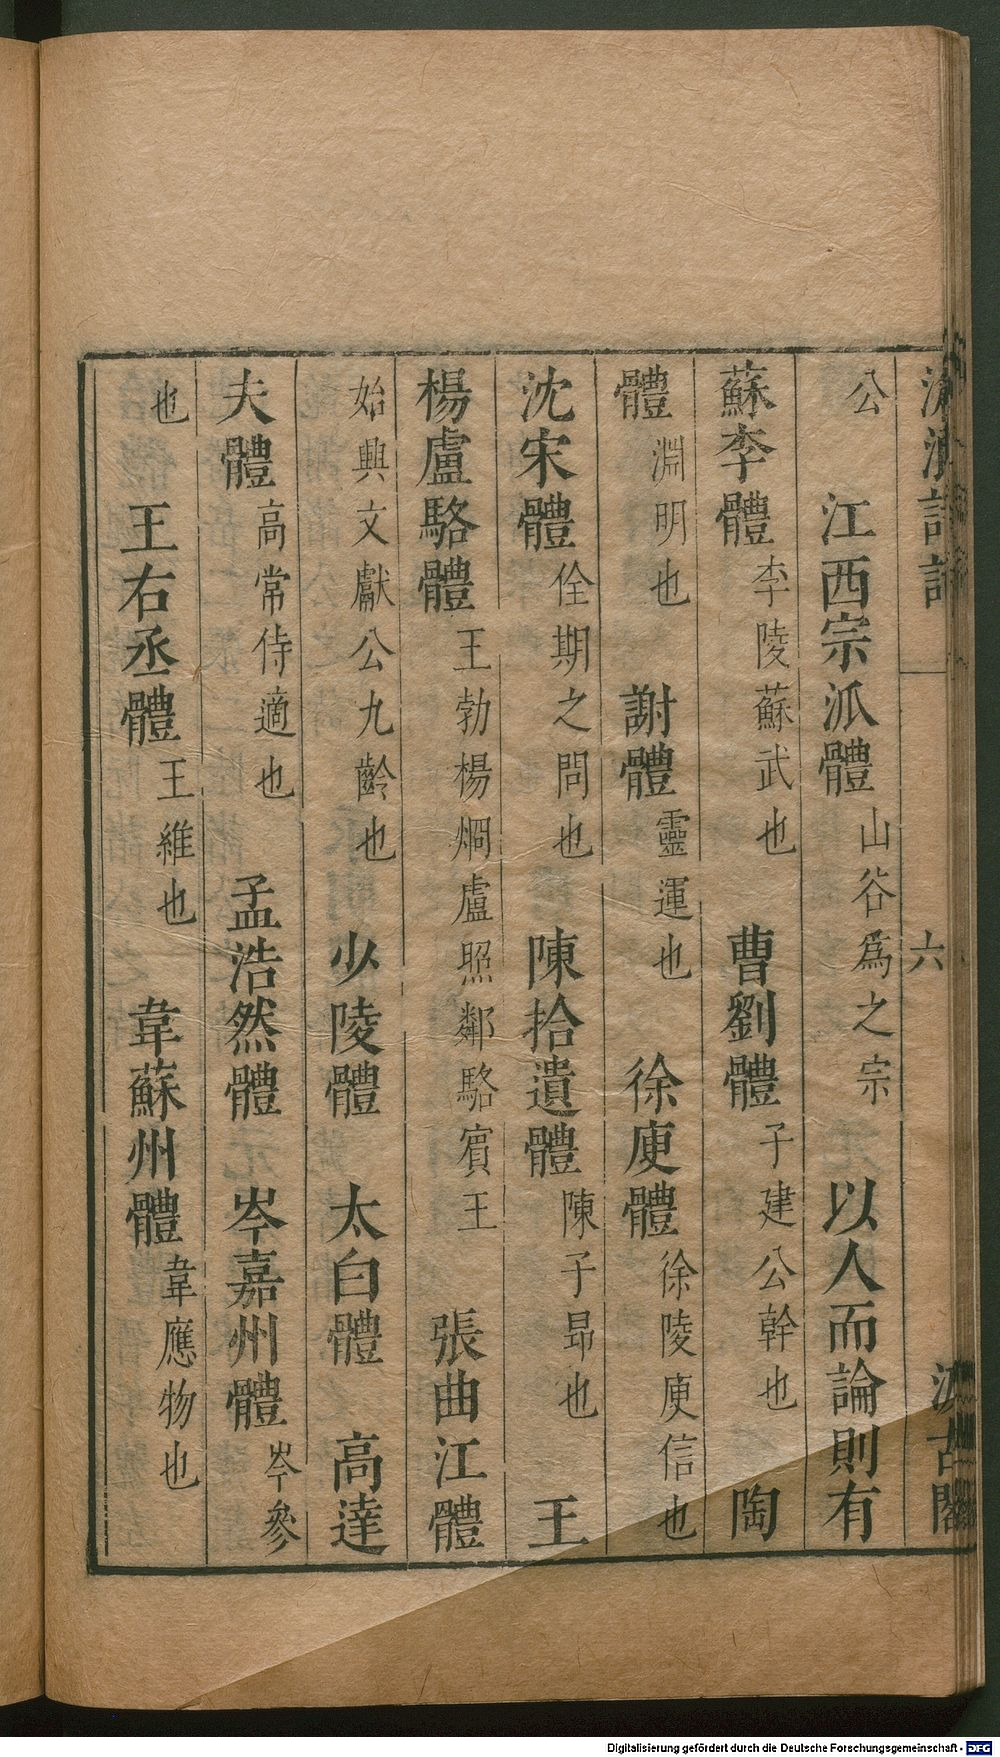 滄浪詩話
六
汲古閣
公　江西宗派體山谷爲之宗　以人而論則有
蘇李體李陵蘇武也　曹劉體子建公幹也　陶
體淵明也　謝體靈運也　徐庾體徐陵庾信也
沈宋體佺期之問也　陳拾遺體陳子昂也　王
楊盧駱體王勃楊烱盧照鄰駱賓王　張曲江體
始興文獻公九齡也　少陵體　太白體　高達
夫體高常侍適也　孟浩然體　岑嘉州體岑參
也　王右丞體王維也　韋蘇州體韋應物也
Digitalisierung gefördert durch die Deutsche Forschungsgemeinschaft - DFG